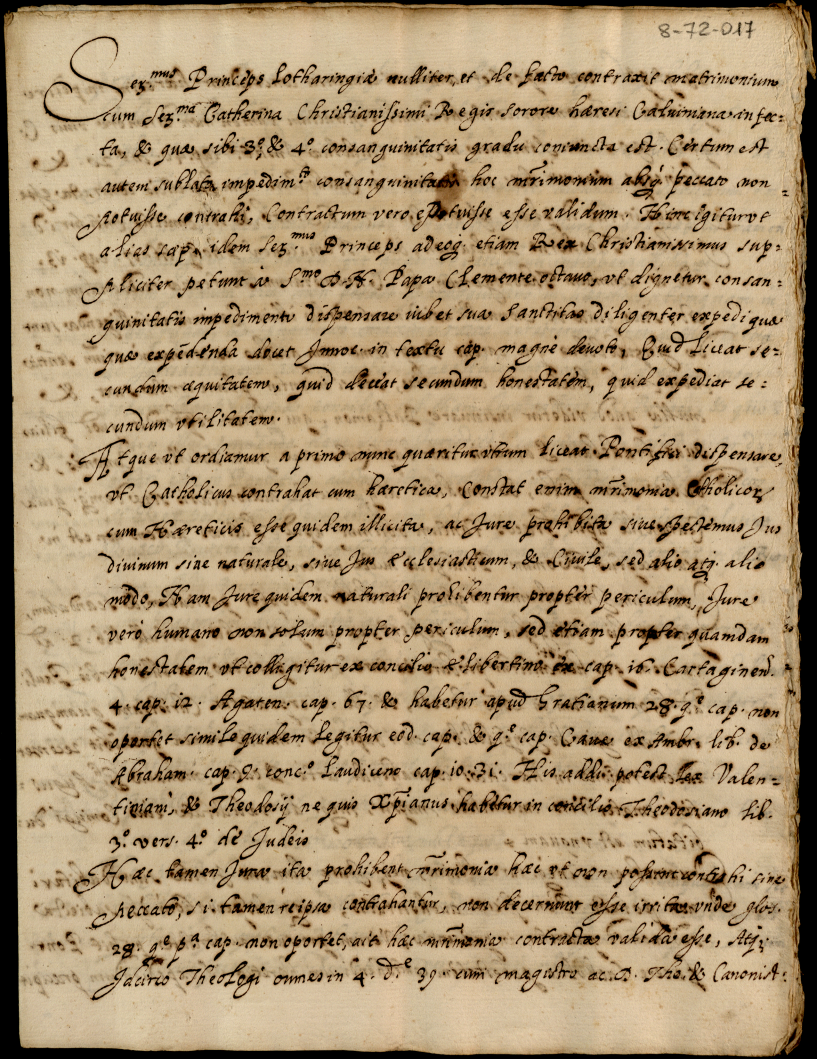 8-72-017
Ser.mus Princeps Lotharingiæ nulliter, et de facto contraxit matrimonium
cum Ser.ma Catherina Christianissimi Regis sorore hæresi Caluiniana infec-
ta, & quæ sibi 3.º & 4.º consanguinitatis gradu coniuncta est. Certum est
autem sublato impedim.to consanguinitatis hoc mr̃imonium absq; peccato non
potuisse contrahi, Contractum vero potuisse esse validum. Hinc igitur vt
alias sæp. idem Ser.mus Princeps adeoq; etiam Rex Christianissimus sup-
pliciter petunt à S.mo D. N. Papa Clemente octauo, vt dignetur consan-
guinitatis impedimento dispensare iubet sua Sanctitas diligenter expedi quæ
quæ expedenda docet Innoc. in textu cap. magnè deuoto, Quid liceat se-
cundum æquitatem, quid deceat secundum honestatem, quid expediat se-
cundum vtilitatem.
Atque vt ordiamur a primo nunc quæritur vtrum liceat Pontifici dispensare,
vt Catholicus contrahat cum hæretica, Constat enim mr̃imonia Catholicor.
cum Hæreticis esse quidem illicita, ac Jure prohibita siue spectemus Jus
diuinum siue naturale, siue Jus Ecclesiasticum, & Ciuile, sed alio atq; alio
modo, Nam Jure quidem naturali prohibentur propter periculum, Jure
verò humano non solum propter periculum, sed etiam propter quamdam
honestatem vt colligitur ex concilio Elibertino cap. 16. Cartaginen.
4. cap. 12. Agaten. cap. 67. & habetur apud Gratianum 28. q.e cap. non
oportet simile quidem legitur eod. cap. & q.e cap. Caue ex Ambr. lib. de
Abraham. cap. 9. conc.º Laudiceno cap. 10. 31. His addi potest lex Valen-
tiniani, & Theodosij ne quis Xp̃ianus habetur in concilio Theodosiano lib.
3.º vers. 4.º de Judeis
Hæc tamen Jura ita prohibent mr̃imonia hæc vt non possint contrahi sine
peccato, si tamen reipsa contrahantur, non decernunt esse irrita vnde glos.
28. q.e p.a cap. non oportet, ait hæc mr̃imonia contracta valida esse, Atq;
Theologi omnes in 4. d.e 39. cum magistro ac D. Tho. & Canonist-